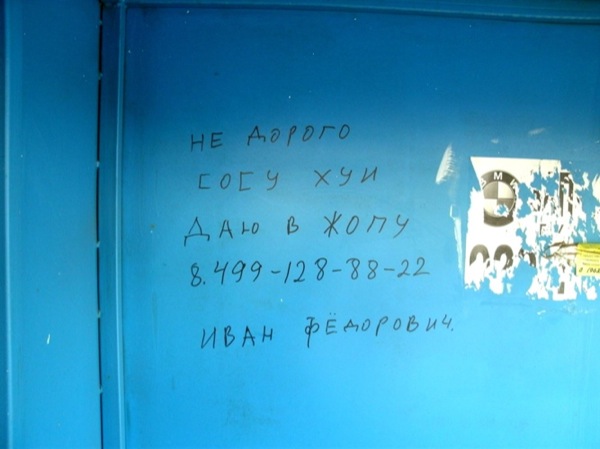 НЕ ДОРОГО
СОСУ ХУИ
ДАЮ В ЖОПУ
8.499-128-88-22
ИВАН ФЁДОРОВИЧ.